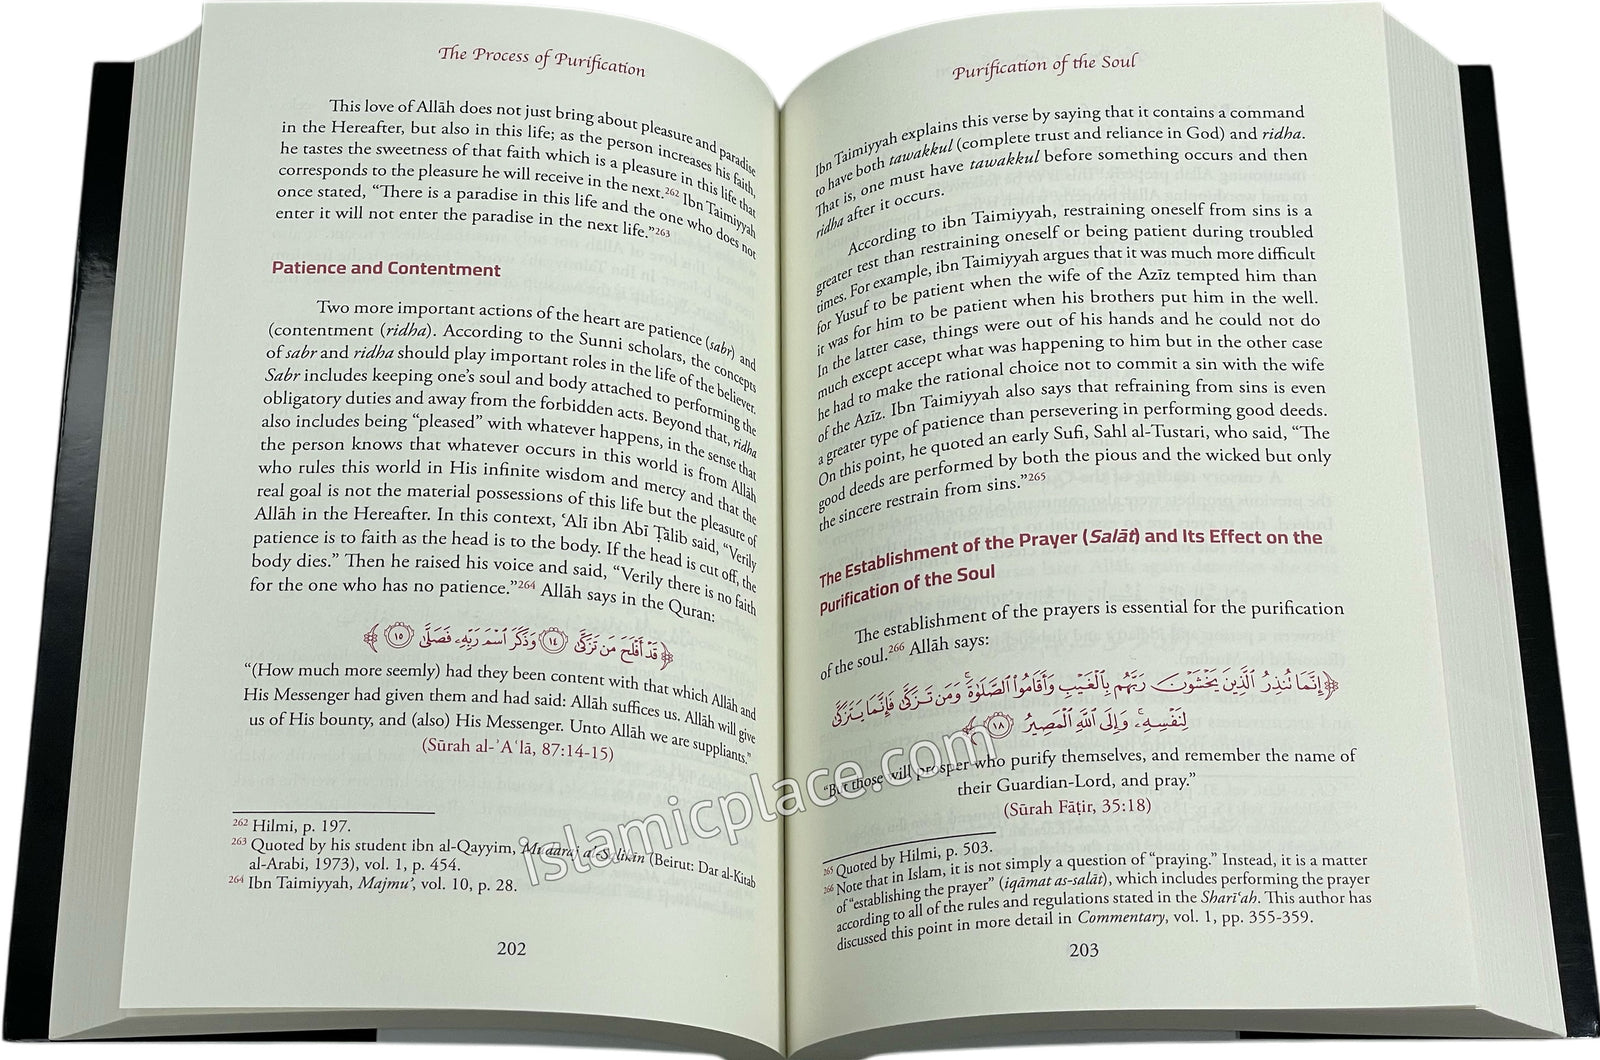 The Process of Purification
This love of Allāh does not just bring about pleasure and paradise
in the Hereafter, but also in this life; as the person increases his faith,
he tastes the sweetness of that faith which is a pleasure in this life that
corresponds to the pleasure he will receive in the next.²⁶² Ibn Taimiyyah
once stated, “There is a paradise in this life and the one who does not
enter it will not enter the paradise in the next life.”²⁶³
Patience and Contentment
Two more important actions of the heart are patience (sabr) and
(contentment (ridha). According to the Sunni scholars, the concepts
of sabr and ridha should play important roles in the life of the believer.
Sabr includes keeping one’s soul and body attached to performing the
obligatory duties and away from the forbidden acts. Beyond that, ridha
also includes being “pleased” with whatever happens, in the sense that
the person knows that whatever occurs in this world is from Allāh
who rules this world in His infinite wisdom and mercy and that the
real goal is not the material possessions of this life but the pleasure of
Allāh in the Hereafter. In this context, ‘Alī ibn Abī Ṭālib said, “Verily
patience is to faith as the head is to the body. If the head is cut off, the
body dies.” Then he raised his voice and said, “Verily there is no faith
for the one who has no patience.”²⁶⁴ Allāh says in the Quran:
﴿قَدْ أَفْلَحَ مَن تَزَكَّىٰ ١٤ وَذَكَرَ ٱسْمَ رَبِّهِۦ فَصَلَّىٰ ١٥﴾
“(How much more seemly) had they been content with that which Allāh and
His Messenger had given them and had said: Allāh suffices us. Allāh will give
us of His bounty, and (also) His Messenger. Unto Allāh we are suppliants.”
(Sūrah al-ʾAʿlā, 87:14-15)
²⁶² Hilmi, p. 197.
²⁶³ Quoted by his student ibn al-Qayyim, Madaraj al-Salikin (Beirut: Dar al-Kitab
al-Arabi, 1973), vol. 1, p. 454.
²⁶⁴ Ibn Taimiyyah, Majmu’, vol. 10, p. 28.
202
Purification of the Soul
Ibn Taimiyyah explains this verse by saying that it contains a command
to have both tawakkul (complete trust and reliance in God) and ridha.
That is, one must have tawakkul before something occurs and then
ridha after it occurs.
According to ibn Taimiyyah, restraining oneself from sins is a
greater test than restraining oneself or being patient during troubled
times. For example, ibn Taimiyyah argues that it was much more difficult
for Yusuf to be patient when the wife of the Azīz tempted him than
it was for him to be patient when his brothers put him in the well.
In the latter case, things were out of his hands and he could not do
much except accept what was happening to him but in the other case
he had to make the rational choice not to commit a sin with the wife
of the Azīz. Ibn Taimiyyah also says that refraining from sins is even
a greater type of patience than persevering in performing good deeds.
On this point, he quoted an early Sufi, Sahl al-Tustari, who said, “The
good deeds are performed by both the pious and the wicked but only
the sincere restrain from sins.”²⁶⁵
The Establishment of the Prayer (Salāt) and Its Effect on the
Purification of the Soul
The establishment of the prayers is essential for the purification
of the soul.²⁶⁶ Allāh says:
﴿إِنَّمَا تُنذِرُ ٱلَّذِينَ يَخْشَوْنَ رَبَّهُم بِٱلْغَيْبِ وَأَقَامُوا۟ ٱلصَّلَوٰةَ ۚ وَمَن تَزَكَّىٰ فَإِنَّمَا يَتَزَكَّىٰ
لِنَفْسِهِۦ ۚ وَإِلَى ٱللَّهِ ٱلْمَصِيرُ ١٨﴾
“But those will prosper who purify themselves, and remember the name of
their Guardian-Lord, and pray.”
(Sūrah Fāṭir, 35:18)
²⁶⁵ Quoted by Hilmi, p. 503.
²⁶⁶ Note that in Islam, it is not simply a question of “praying.” Instead, it is a matter
of “establishing the prayer” (iqāmat as-salāt), which includes performing the prayer
according to all of the rules and regulations stated in the Sharī‘ah. This author has
discussed this point in more detail in Commentary, vol. 1, pp. 355-359.
203
islamicplace.com